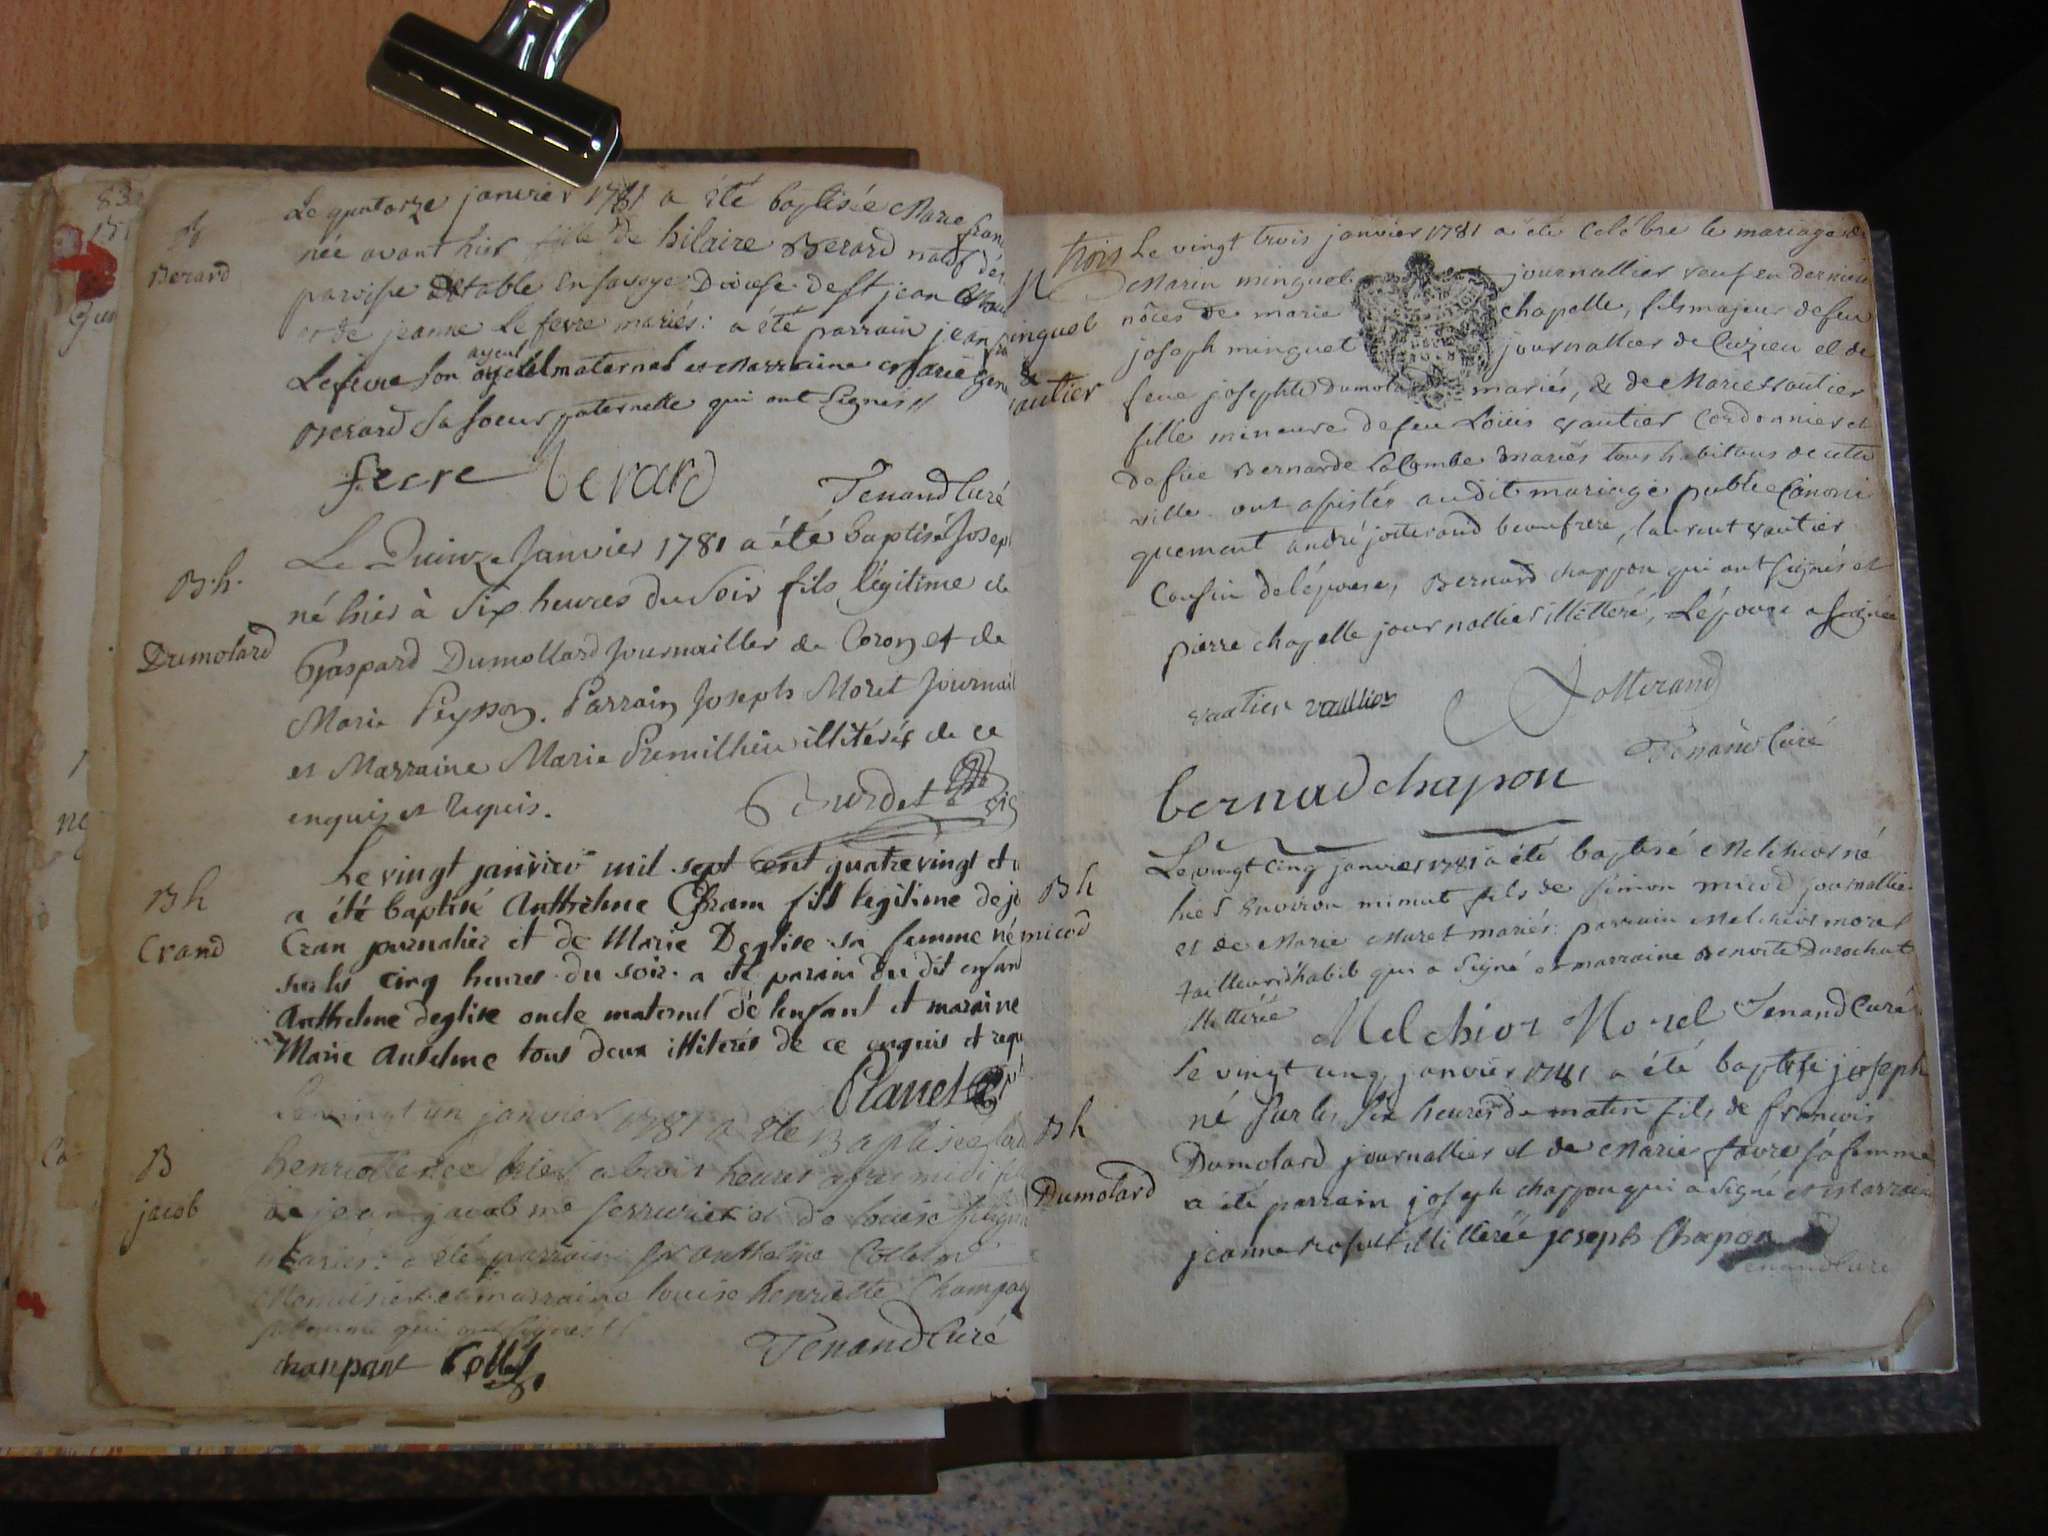 B
Berard
Le quatorze janvier 1781 a été baptisée Marie fran
née avant hier fille de hilaire Berard natif de
paroisse detable en savoye Diocese de St jean
et de jeanne Le fevre mariés: a été parrain jean
ayeul
Lefevre son maternel et Marraine Marie
Berard sa soeur paternelle qui ont signés
fevre berard
Tenand Curé
B.h.
Dumolard
Le Quinze Janvier 1781 a été baptisé Josep
né hier à Six heures du Soir fils légitime de
Gaspard Dumollard Journailler de Coron et de
Marie Peysson. Parrain Joseph Moret Journail
et Marraine Marie Premilhieu illitérés de ce
enquis et requis.
Bh
Crand
Le vingt janvier mil sept cent quatre vingt et u
a été baptisé Anthelme Cran fils legitime de j
Cran journalier et de Marie Deglise sa femme né
sur les cinq heures du soir. a été parain du dit enfant
Anthelme deglise oncle maternel de lenfant et maraine
Marie Anselme tous deux illiterés de ce enquis et requ
Planet
B
jacob
Le vingt un janvier 1781 a été Baptisée
henriette née hier a trois heures apres midi
de jean jacob me serrurier et de louise
mariés: a été parrain Sr anthelme
Menuisier et marraine louise henriette Champag
sa femme qui ont signés
Tenand Curé
chanpant
trois
M
inguet
&
autier
Le vingt trois janvier 1781 a été Celébré le mariage de
Marin minguet journallier veuf en derniere
nôces de marie chapelle, fils majeur de feu
joseph minguet journallier de Cuzieu et de
feue josephte Dumola mariés, & de Marie vautier
fille mineure de feu Loüis vautier Cordonnier et
de fue Bernarde Lacombe mariés tous habitans de cette
ville. ont assistés audit mariage publie Canoni
quement andré jotterand beaufrere, laurent vautier
Cousin de lépouse, Bernard chappon qui ont signés et
pierre chapelle journallier illitteré, Lépouse a signée
vautier vautier
Jotterand
Tenand Curé
bernad chapon
Bh
micod
Le vingt cinq janvier 1781 a été baptisé Melchior né
hier environ minuit fils de simon micod journallier
et de Marie Muret mariés: parrain Melchior morel
tailleur d'habit qui a signé et marraine Benoite Durochat
illitterée
Melchior Morel Tenand Curé
Bh
Dumolard
Le vingt cinq janvier 1781 a été baptisé joseph
né sur les six heures de matin fils de francois
Dumolard journallier et de Marie favre sa femme
a été parrain joseph chappon qui a signé et Marraine
jeanne illitterée joseph Chapon
Tenand Curé